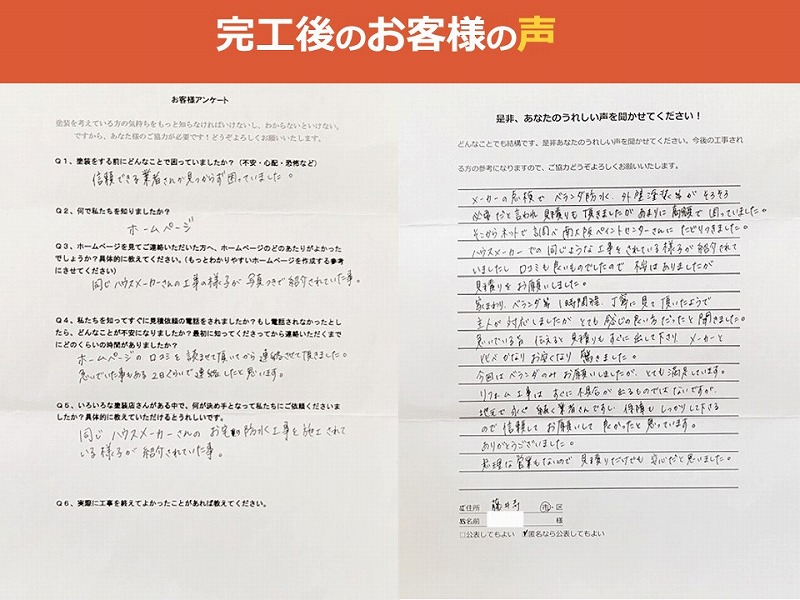 完工後のお客様の声
お客様アンケート
塗装を考えている方の気持ちをもっと知らなければいけないし、わからないといけない。
ですから、あなた様のご協力が必要です！どうぞよろしくお願いいたします。
Q１、塗装をする前にどんなことで困っていましたか？（不安・心配・恐怖など）
信頼できる業者さんが見つからず困っていました。
Q２、何で私たちを知りましたか？
ホームページ
Q３、ホームページを見てご連絡いただいた方へ、ホームページのどのあたりがよかった
でしょうか？具体的に教えてください。（もっとわかりやすいホームページを作成する参考
にさせてください）
同じハウスメーカーさんの工事の様子が写真つきで紹介されていた事。
Q４、私たちを知ってすぐに見積依頼の電話をされましたか？もし電話されなかったとし
たら、どんなことが不安になりましたか？最初に知ってくださってから連絡いただくまで
にどのくらいの時間がありましたか？
ホームページの口コミを読ませて頂いてから連絡させて頂きました。
急いでいた事もあり2日くらいで連絡したと思います。
Q５、いろいろな塗装店さんがある中で、何が決め手となって私たちにご依頼くださいま
したか？具体的に教えていただけるとうれしいです。
同じハウスメーカーさんのお宅の防水工事を施工されて
いる様子が紹介されていた事。
Q６、実際に工事を終えてよかったことがあれば教えてください。
是非、あなたのうれしい声を聞かせてください！
どんなことでも結構です。是非あなたのうれしい声を聞かせてください。今後の工事され
る方の参考になりますので、ご協力どうぞよろしくお願いいたします。
メーカーの点検でベランダ防水、外壁塗装等がそろそろ
必要だと言われ見積りも頂きましたがあまりに高額で困っていました。
そこからネットで調べ南大阪ペイントセンターさんにたどりつきました。
ハウスメーカーでの同じような工事をされている様子が紹介されて
いましたし口コミも良いものでしたので不安はありましたが
見積りをお願いしました。
家まわり、ベランダ等1時間程、丁寧に見て頂いたようで
主人が対応しましたがとても感じの良い方だったと聞きました。
急いでいる旨伝えると見積りもすぐに出して下さり、メーカーと
比べかなりお安くなり驚きました。
今回はベランダのみお願いしましたが、とても満足しています。
リフォーム工事はすぐに不具合が出るものではないですが、
地元で永く続く業者さんですし、保障もしっかりして下さる
ので信頼してお願いして良かったと思っています。
ありがとうございました。
無理な営業もないので見積りだけでも安心だと思いました。
住所 藤井寺 市・区
お名前 様
□公表してもよい ☑匿名なら公表してもよい